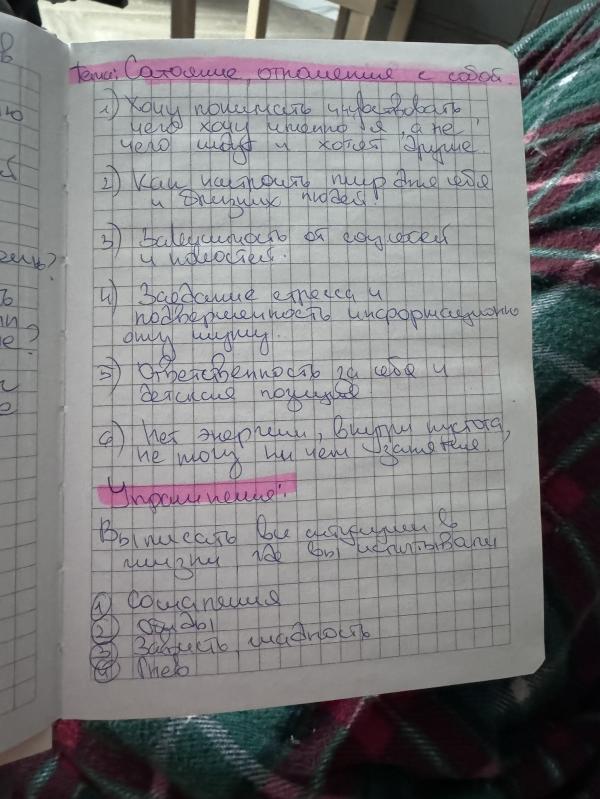 в
ню
ей
чень?
ть
ли
не?
и
е
Тема: Состояние, отношения с собой.
1) Хочу понимать чувствовать
чего хочу именно я, а не
чего ждут и хотят другие
2) Как настроить мир для себя
и близких людей.
3) Зависимость от соцсетей
и новостей.
4) Заедание стресса и
подверженность информационно
му шуму.
5) Ответственность за себя и
детская позиция
6) Нет энергии, внутри пустота,
не могу ни чем заняться.
Упражнения:
Выписать все ситуации в
жизни где вы испытывали
1 Сожаления
2 Обиды
3 Зависть, жадность
4 Гнев